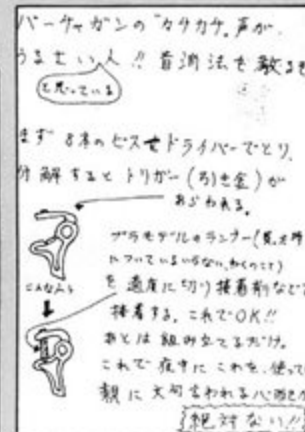 バーチャガンの"カチカチ"声が、
うるせい人!! 音消法を教えま
と思っている
まず 8本のビスをドライバーでとり、
分解すると トリガー(引き金)が
あらわれる。
プラモデルのランナー(
についているいらないわくのこと)
こんなふう
を 適度に切り接着剤などで
接着する。これでOK!!
あとは組み立てるだけ。
これで夜中にこれを、使って
親に文句言われる心配
絶対ない!!